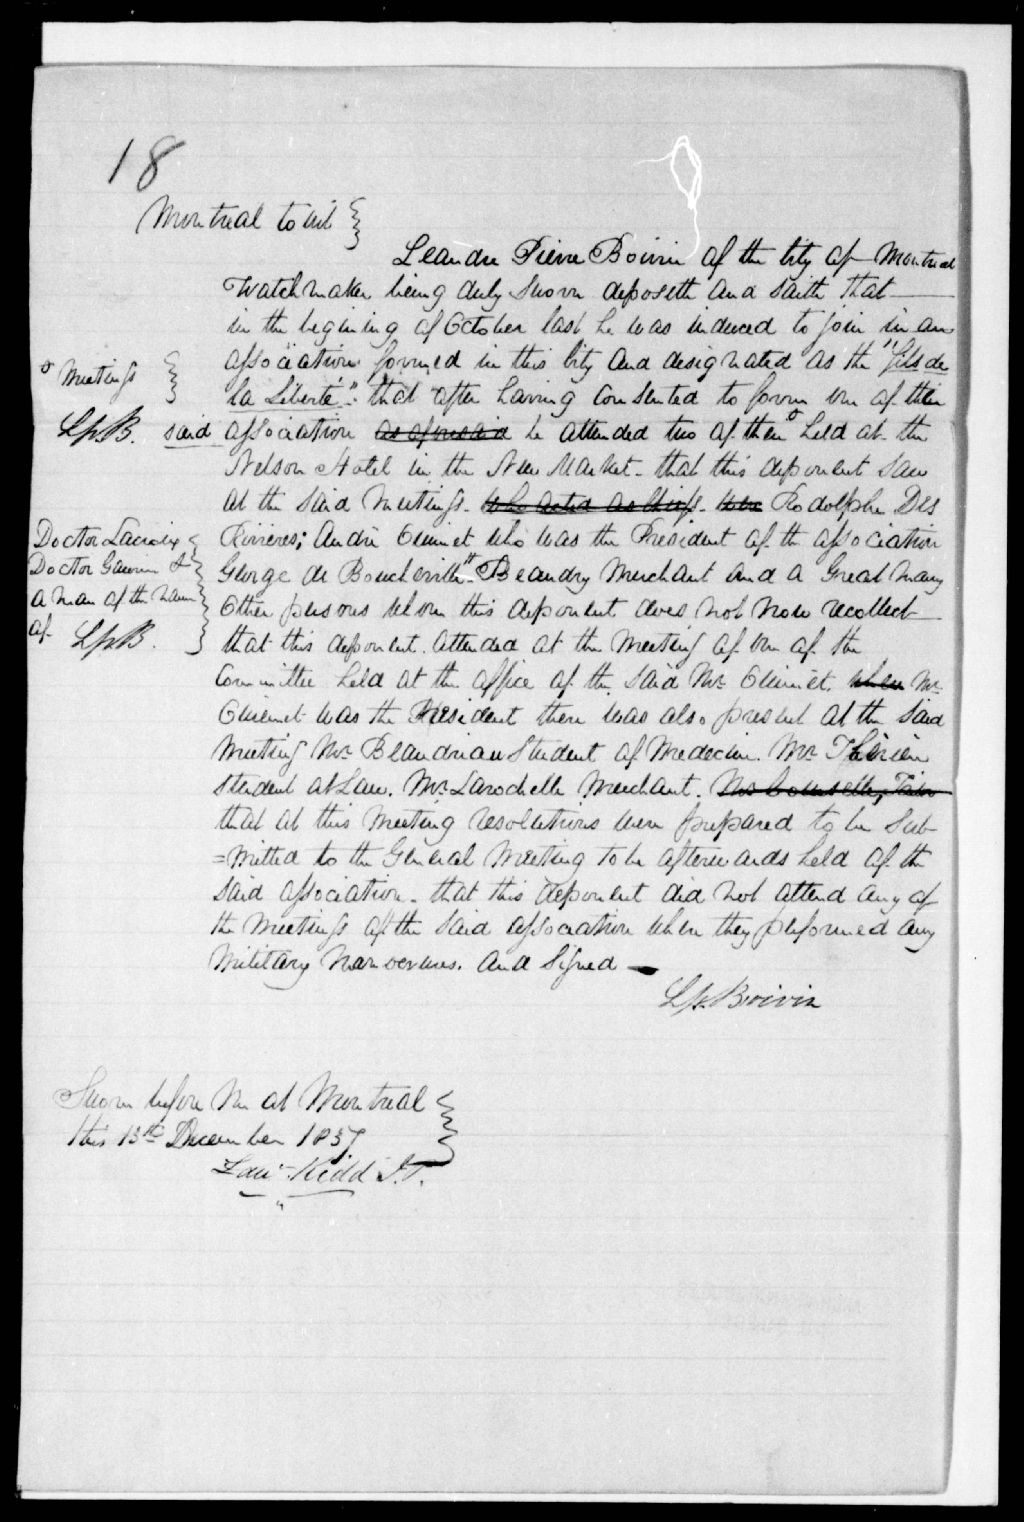 18
Montreal to wit
Leandre Pierre Boivin of the City of Montreal
Watchmaker being duly sworn deposeth and saith that
in the begining of October last he was induced to join in an
association formed in this City and designated as the "fils de
la Liberté". that after having consented to form one of their
° Meetings
LpB. said association ~~as aforesaid~~ he attended two of their° held at the
Nelson Hotel in the New Market - that this deponent saw
at the said meetings - ~~who acted as chiefs - were~~ Rodolphe Des
Rivieres; André Ouimet who was the President of the association
Doctor Lacroix
Doctor Gauvin &
a man of the name
of LpB.
George de Boucherville # Beaudry Merchant and a Great many
other persons whom this deponent does not now recollect
that this deponent attended at the meeting of one of the
Committee held at the office of the said Mr. Ouimet. ~~when~~ Mr.
Ouimet was the President there was also present at the said
Meeting Mr. Beaudriau Student of Medecine. Mr. Therien
Student at Law. Mr. Larochelle Merchant.
that at this Meeting resolutions were prepared to be sub-
=mitted to the General Meeting to be afterwards held of the
said association - that this deponent did not attend any of
the Meetings of the said association when they performed any
Military Manoevures. and Signed
Lp. Boivin
Sworn before Me at Montreal
this 13th December 1837
Law. Kidd J.P.